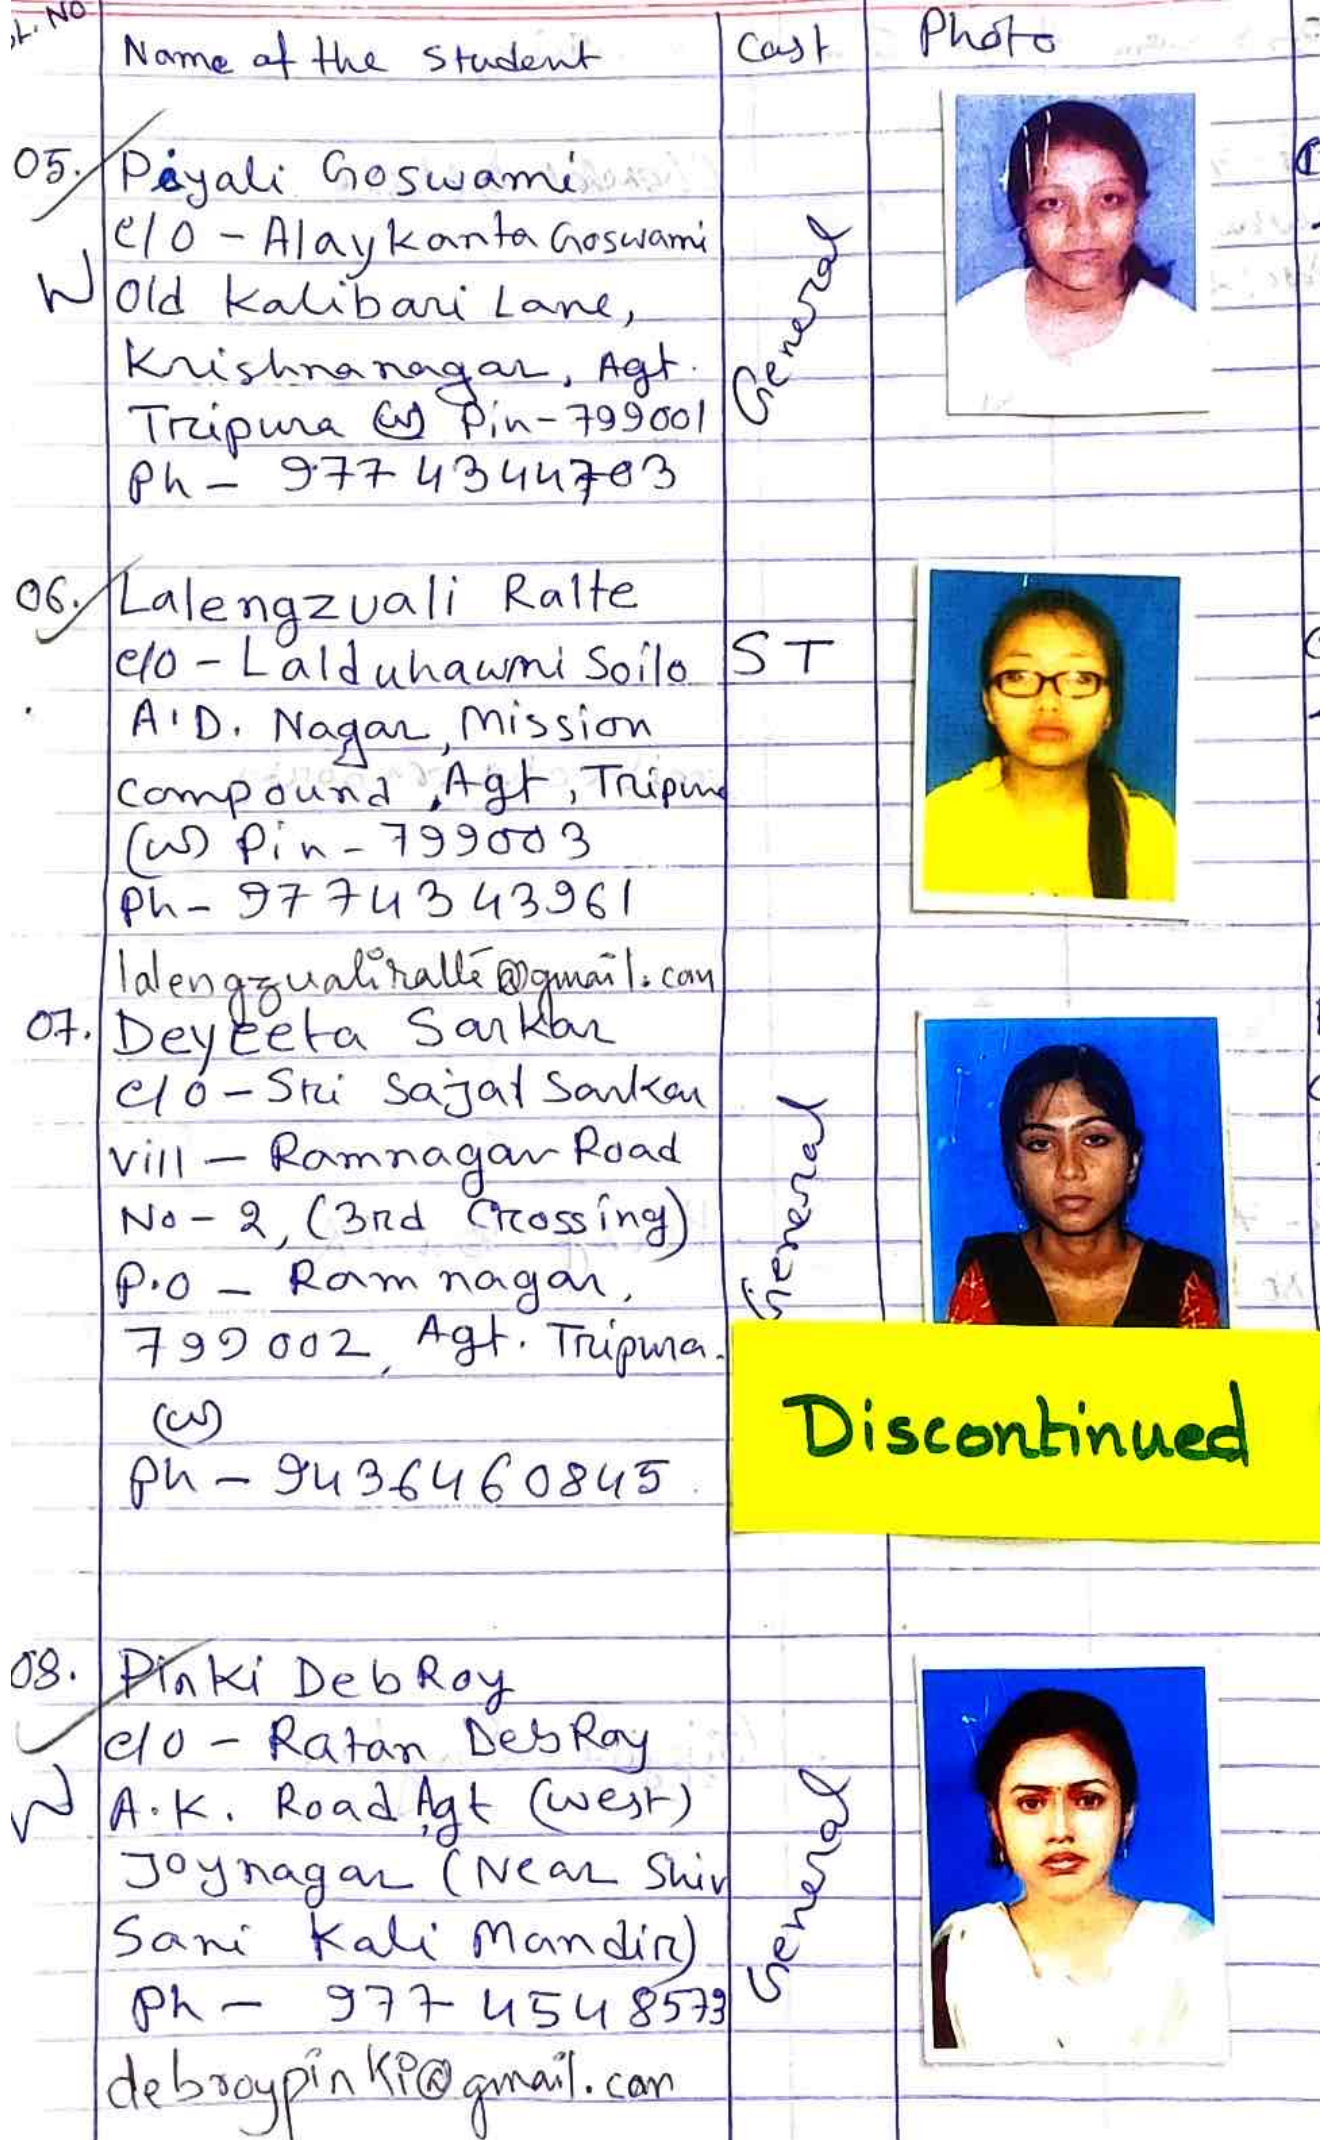 SL. NO
Name of the Student
Cast
Photo
05.
Piyali Goswami
C/O - Alaykanta Goswami
Old Kalibari Lane,
Krishnanagar, Agt.
Tripura (W) Pin-799001
Ph - 9774344703
General
06.
Lalengzuali Ralte
C/O - Lalduhawmi Soilo
A.D. Nagar, Mission
Compound, Agt, Tripura
(W) Pin - 799003
Ph - 9774343961
lalengzualiralte@gmail.com
ST
07.
Deyeeta Sarkar
C/O - Sri Sajal Sarkar
Vill - Ramnagar Road
No - 2, (3rd Crossing)
P.O - Ramnagar,
799002, Agt. Tripura.
(W)
Ph - 9436460845
General
Discontinued
08.
Pinki DebRoy
C/O - Ratan DebRoy
A.K. Road, Agt (West)
Joynagar (Near Shiv
Sani Kali Mandir)
Ph - 9774548573
debroypinki@gmail.com
General